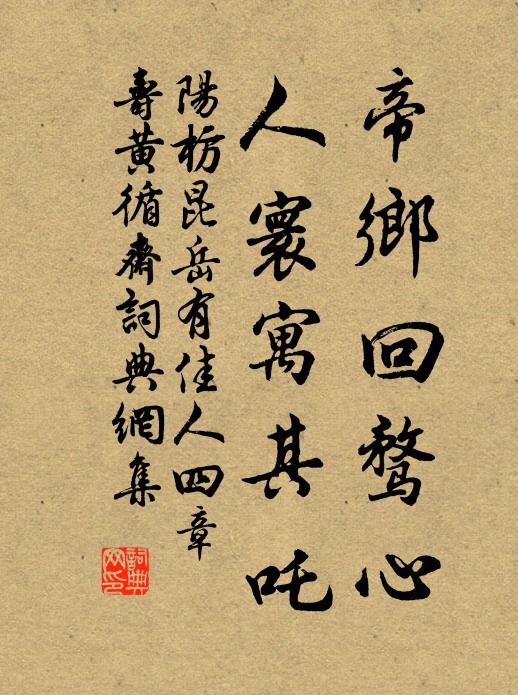 帝鄉回鶩心
人寰寓其吒
陽枋昆岳有佳人四章
壽黃循齋詞典網集
詞典网印